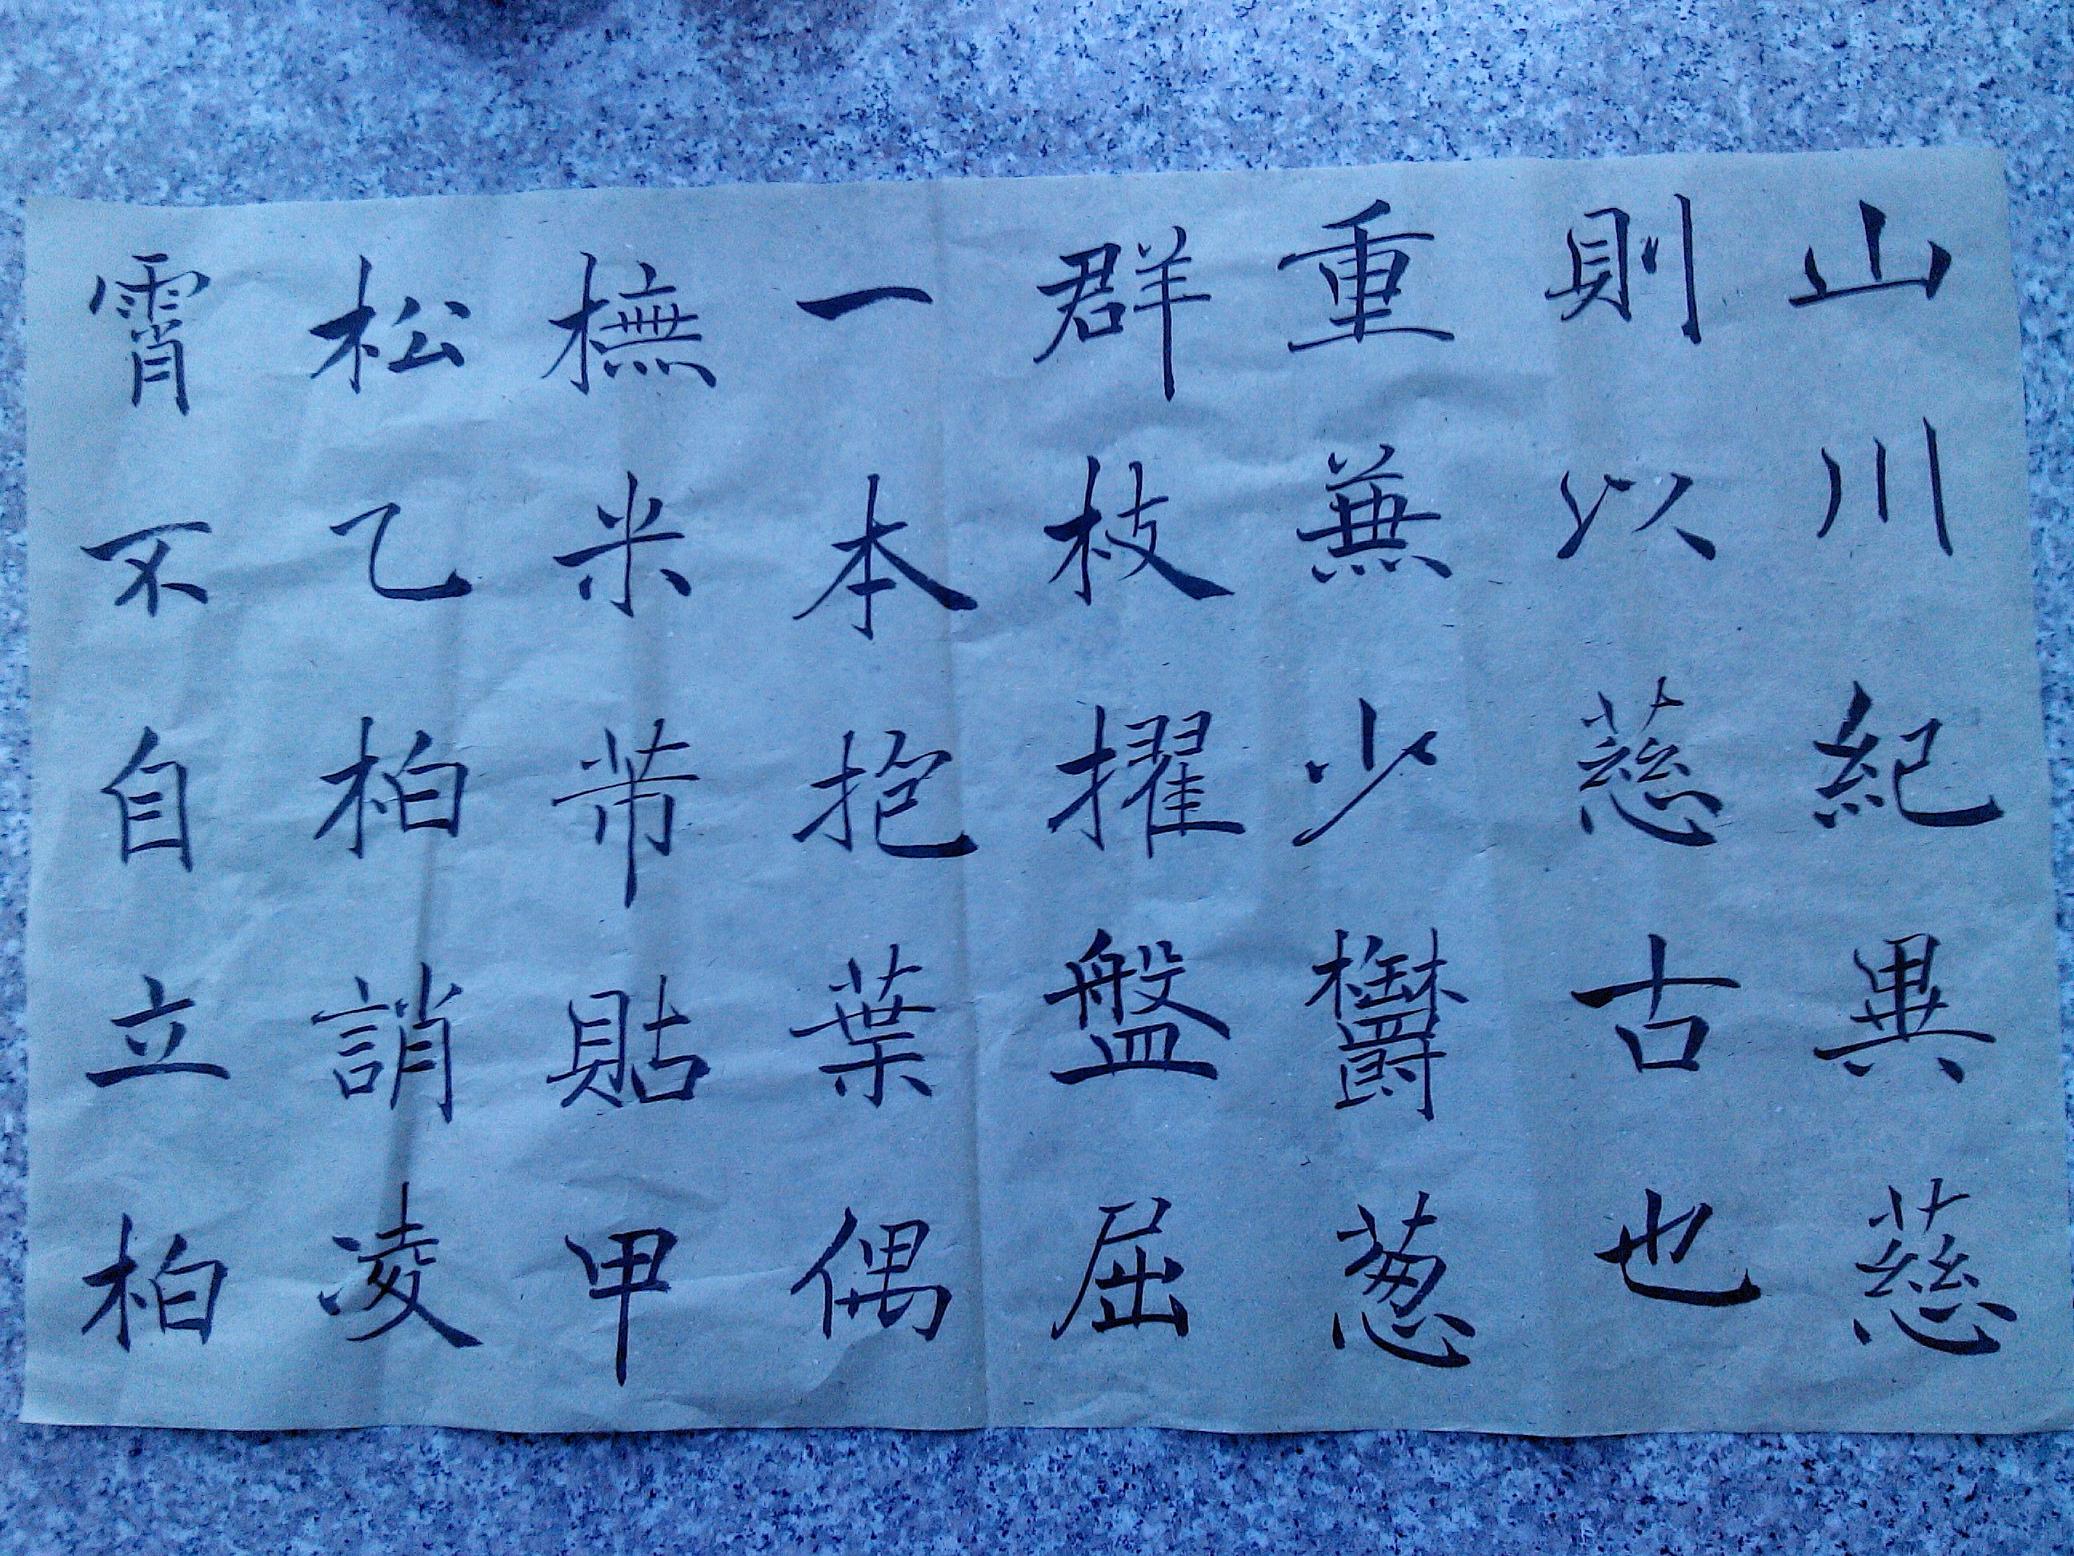 山川紀異慈
則以慈古也
重蕪少欝葱
群枝擢盤屈
一本抱葉偶
橅米芾貼甲
松乙柏誚凌
霄不自立柏